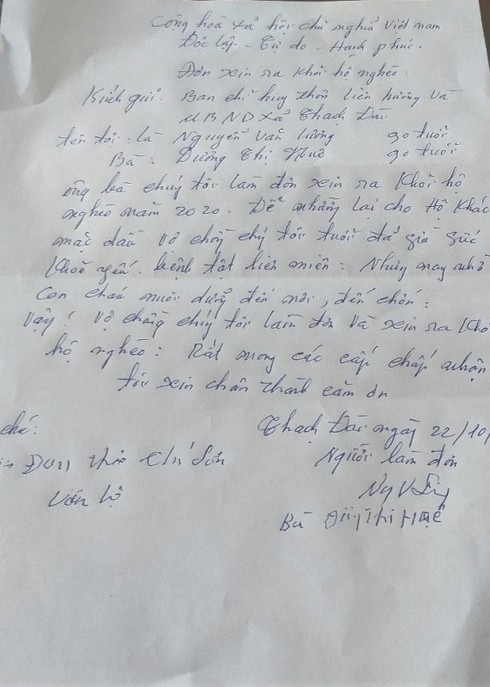 Cộng hoà xã hội chủ nghĩa Việt nam
Độc lập - Tự do - Hạnh phúc.
Đơn xin ra khỏi hộ nghèo.
Kính gửi: Ban chỉ huy thôn liên hương và
UBND Xã Thạch Đài
tên tôi: là Nguyễn Văn lương 90 tuổi
Bà: Dương Thị Huê 90 tuổi
ông bà chúng tôi làm đơn xin ra khỏi hộ
nghèo năm 2020. Để nhường lại cho Hộ Khác
mặc dầu vợ chồng chúng tôi tuổi đã già sức
khoẻ yếu. bệnh tật liên miên: Nhưng may nhờ
con cháu nuôi dưỡng đến nơi, đến chốn:
Vậy! vợ chồng chúng tôi làm đơn và xin ra khỏ
hộ nghèo: Rất mong các cấp chấp nhận
tôi xin chân thành cảm ơn
Thạch Đài ngày 22/10/
chú:
Đơn
Người làm đơn
Bà